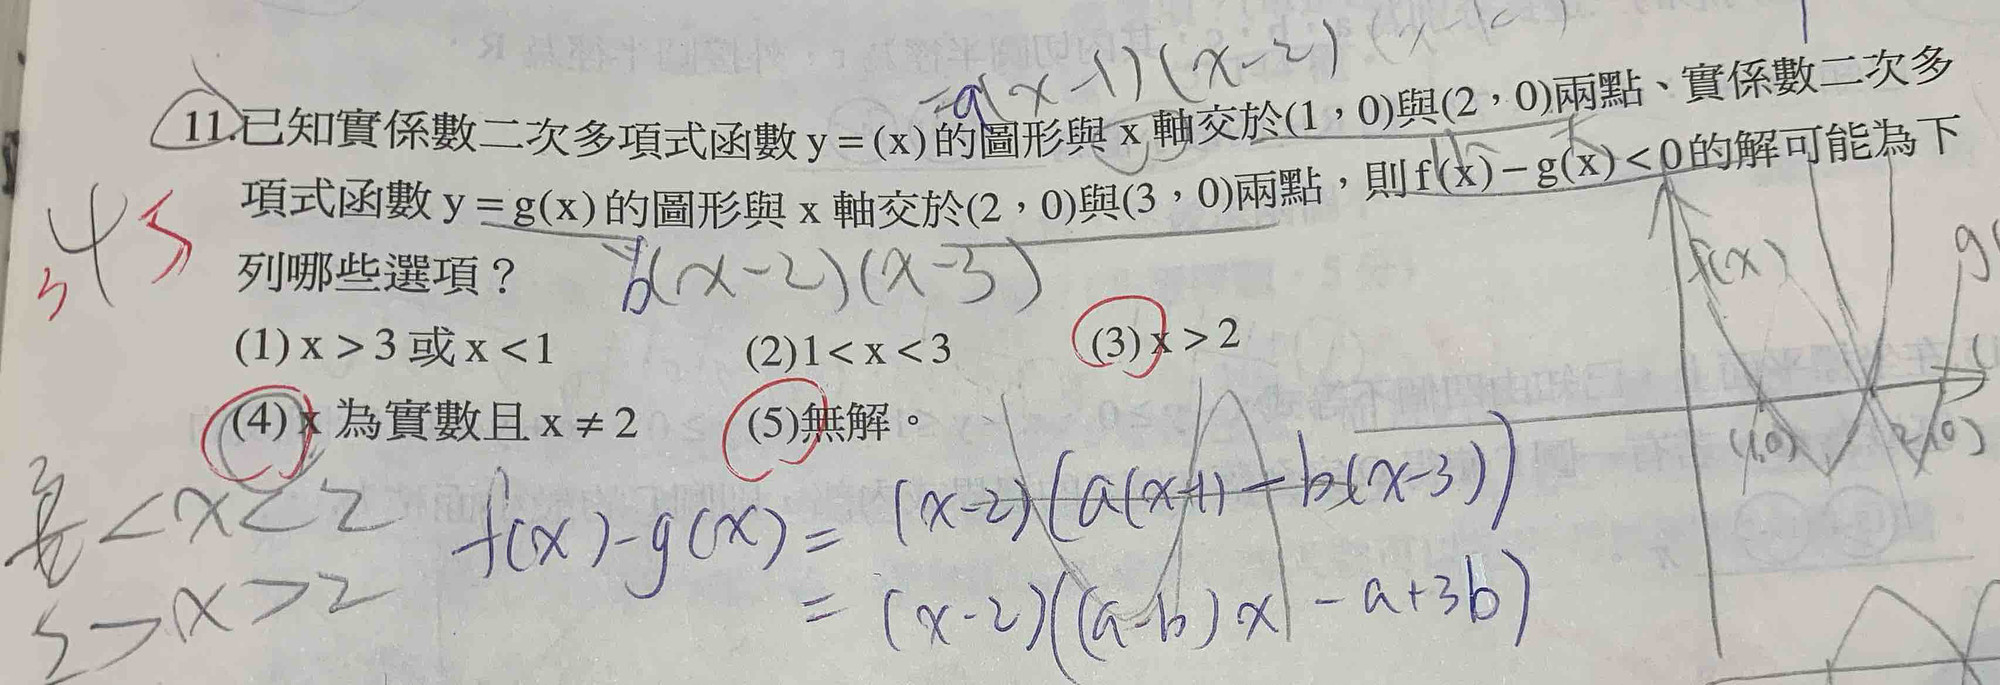 =a(x-1)(x-2)
11.已知實係數二次多項式函數 y = (x) 的圖形與 x 軸交於(1,0)與(2,0)兩點、實係數二次多
項式函數 y = g(x) 的圖形與 x 軸交於(2,0)與(3,0)兩點,則 f(x) − g(x) < 0 的解可能為下
列哪些選項?
b(x-2)(x-3)
f(x)
(1) x > 3 或 x < 1
(2) 1 < x < 3
(3) x > 2
(4) x 為實數且 x ≠ 2
(5)無解。
(1,0)
f(x)-g(x) = (x-2)(a(x-1) - b(x-3))
= (x-2)((a-b)x - a+3b)
<x<2
>x>2